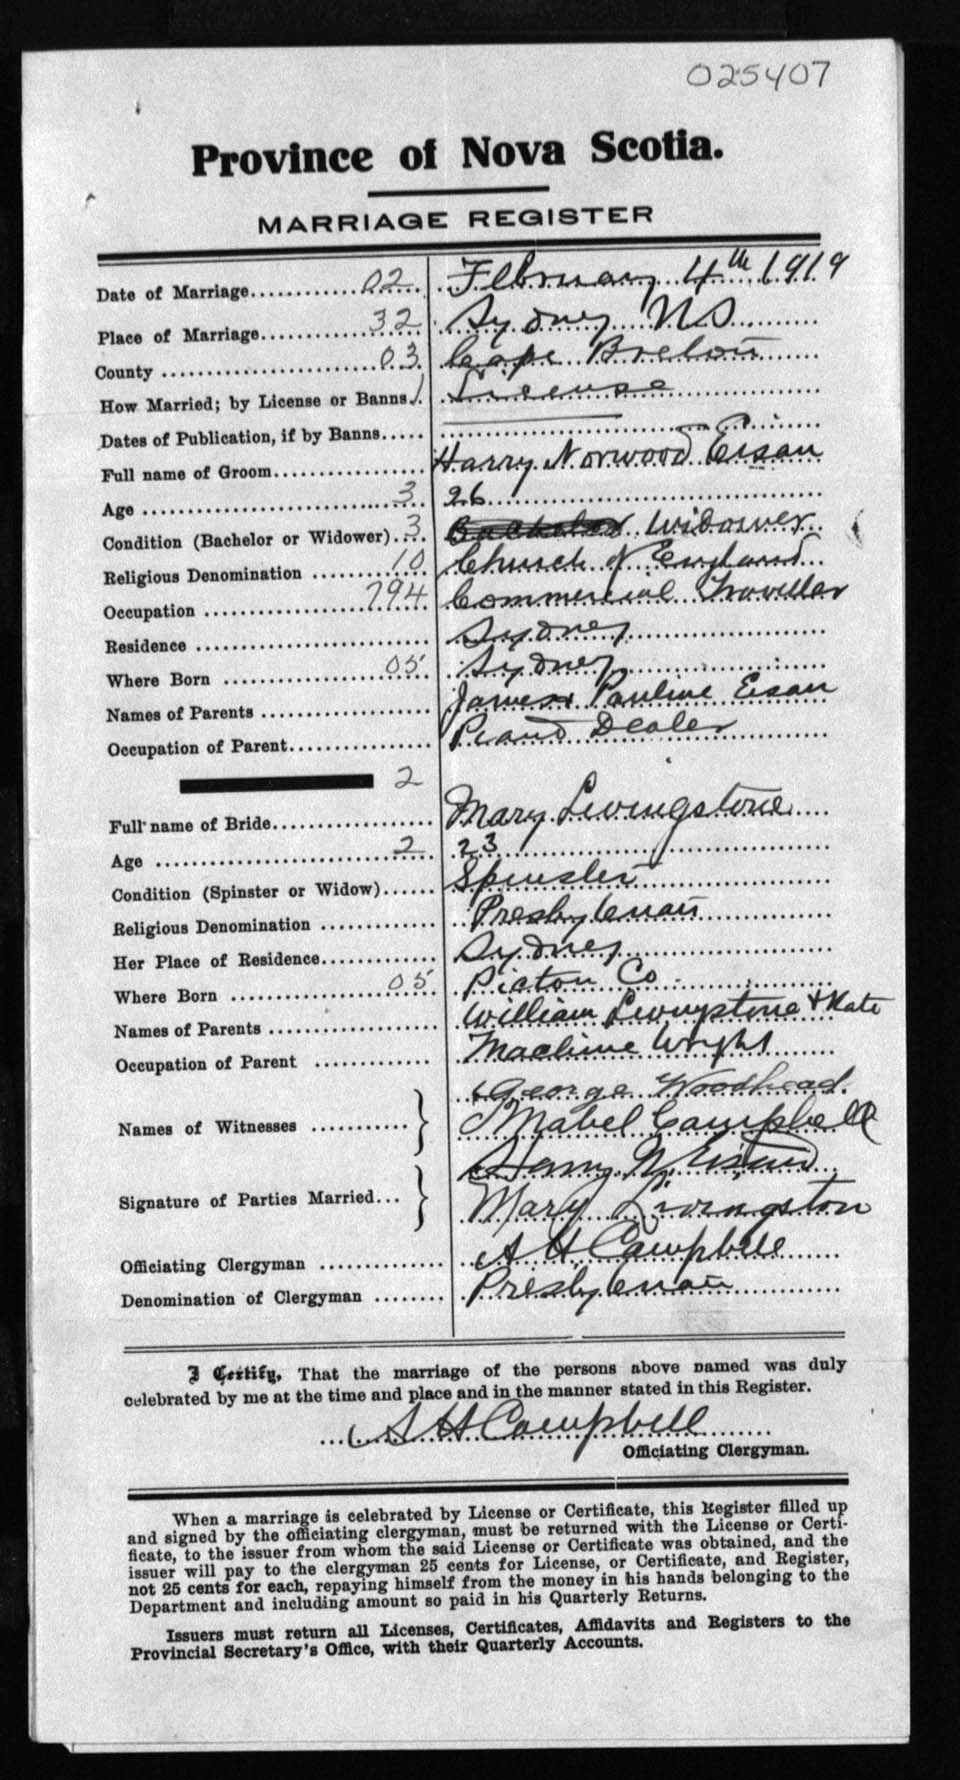 025407
Province of Nova Scotia.
MARRIAGE REGISTER
Date of Marriage 02 February 4th 1919
Place of Marriage 32 Sydney NS
County 03 Cape Breton
How Married; by License or Banns 1 License
Dates of Publication, if by Banns
Full name of Groom Harry Norwood Eisan
Age 3 26
Condition (Bachelor or Widower) 3 Bachelor Widower
Religious Denomination 10 Church of England
Occupation 794 Commercial Traveller
Residence Sydney
Where Born 05 Sydney
Names of Parents James Pauline Eisan
Occupation of Parent Piano Dealer
2
Full name of Bride Mary Livingstone
Age 2 23
Condition (Spinster or Widow) Spinster
Religious Denomination Presbyterian
Her Place of Residence Sydney
Where Born 05 Pictou Co
Names of Parents William Livingstone + Kate
Occupation of Parent Machine Wright
George Woodhead
Names of Witnesses Mabel Campbell
Harry N. Eisan
Signature of Parties Married Mary Livingston
Officiating Clergyman A H Campbell
Denomination of Clergyman Presbyterian
I Certify, That the marriage of the persons above named was duly
celebrated by me at the time and place and in the manner stated in this Register.
A H Campbell
Officiating Clergyman.
When a marriage is celebrated by License or Certificate, this Register filled up
and signed by the officiating clergyman, must be returned with the License or Certi-
ficate, to the issuer from whom the said License or Certificate was obtained, and the
issuer will pay to the clergyman 25 cents for License, or Certificate, and Register,
not 25 cents for each, repaying himself from the money in his hands belonging to the
Department and including amount so paid in his Quarterly Returns.
Issuers must return all Licenses, Certificates, Affidavits and Registers to the
Provincial Secretary's Office, with their Quarterly Accounts.